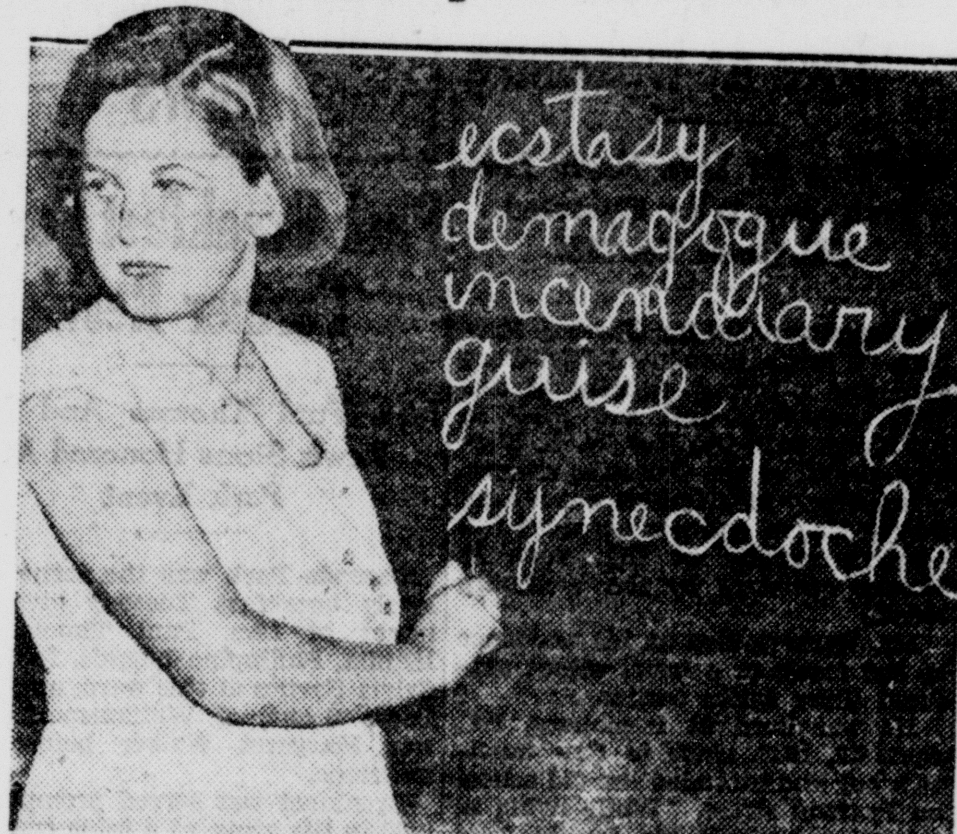 ecstasy
demagogue
incendiary
guise
synecdoche